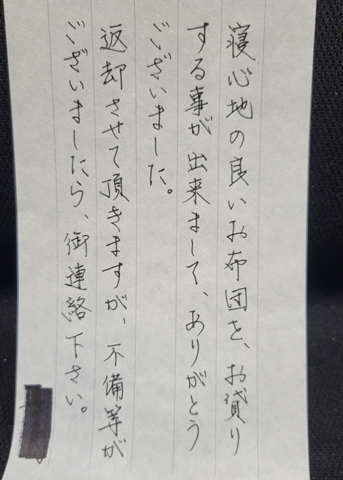 寝心地の良いお布団を、お貸り
する事が出来まして、ありがとう
ございました。
返却させて頂きますが、不備等が
ございましたら、御連絡下さい。